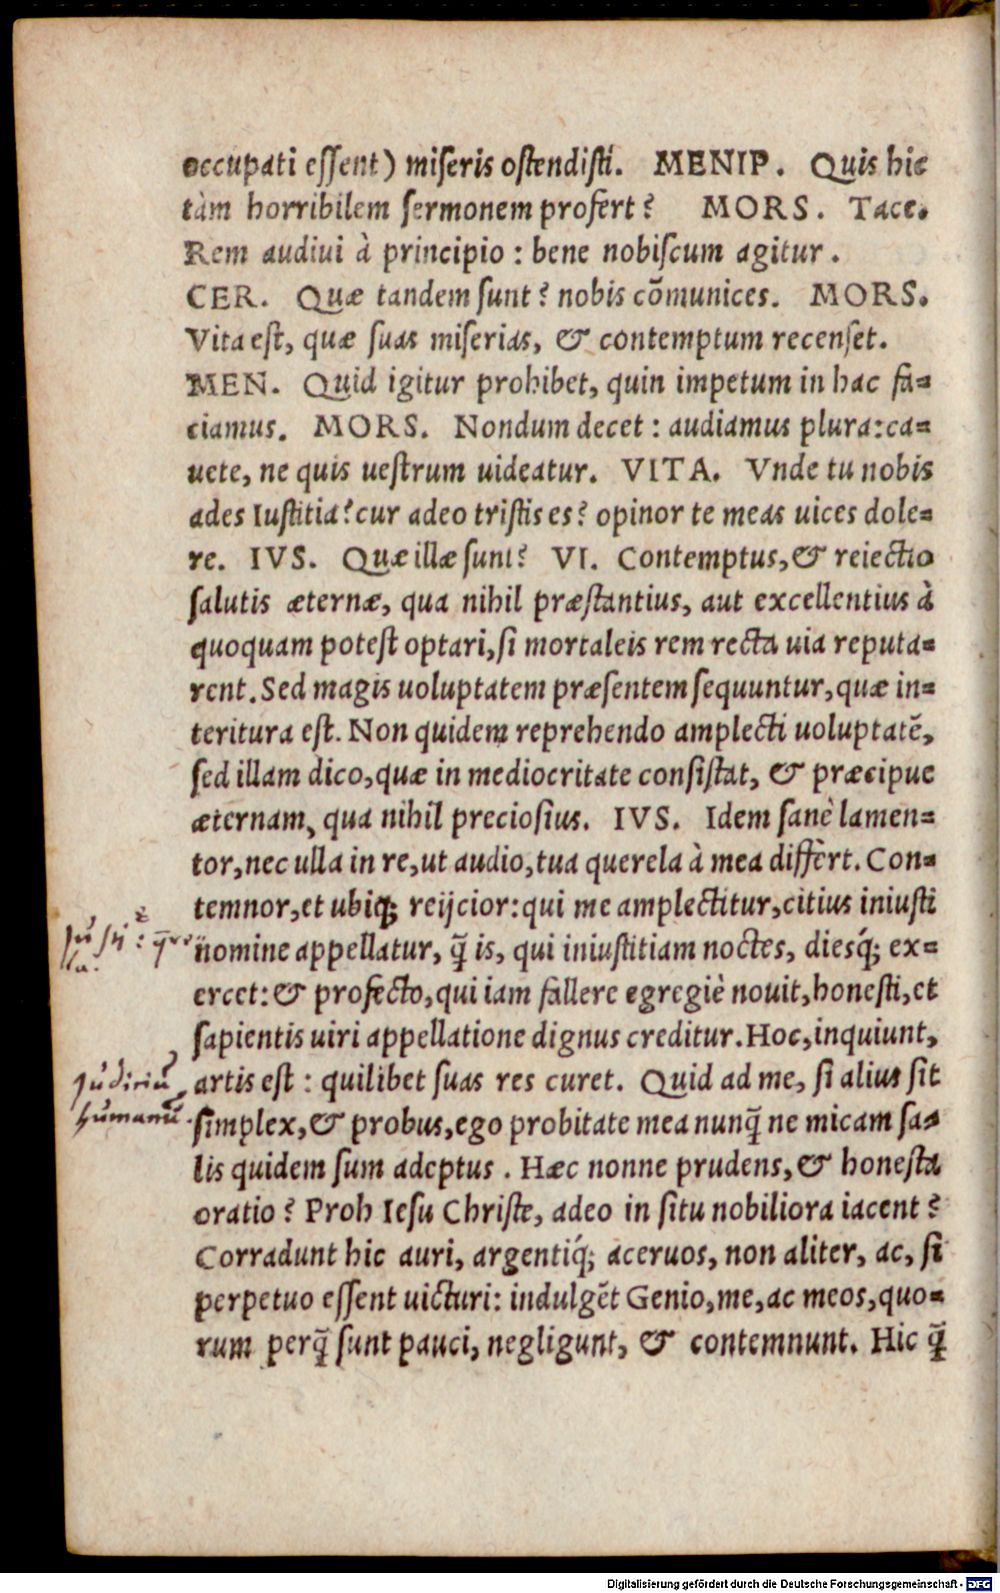 occupati eſſent) miſeris oſtendiſti. MENIP. Quis hic
tàm horribilem ſermonem profert? MORS. Tace.
Rem audivi à principio: bene nobiſcum agitur.
CER. Quæ tandem ſunt? nobis cōmunices. MORS.
Vita eſt, quæ ſuas miſerias, & contemptum recenſet.
MEN. Quid igitur prohibet, quin impetum in hac fa=
ciamus. MORS. Nondum decet: audiamus plura: ca=
uete, ne quis ueſtrum uideatur. VITA. Vnde tu nobis
ades Iuſtitia? cur adeo triſtis es? opinor te meas uices dole=
re. IVS. Quæ illæ ſunt? VI. Contemptus, & reiectio
ſalutis æternæ, qua nihil præſtantius, aut excellentius à
quoquam poteſt optari, ſi mortaleis rem recta uia reputa=
rent. Sed magis uoluptatem præſentem ſequuntur, quæ in=
teritura eſt. Non quidem reprehendo amplecti uoluptatē,
ſed illam dico, quæ in mediocritate conſiſtat, & præcipue
æternam, qua nihil precioſius. IVS. Idem ſanè lamen=
tor, nec ulla in re, ut audio, tua querela à mea differt. Con=
temnor, et ubiq; reijcior: qui me amplectitur, citius iniuſti
nomine appellatur, q̃ is, qui iniuſtitiam noctes, dieſq́; ex=
ercet: & profecto, qui iam fallere egregiè nouit, honeſti, et
ſapientis uiri appellatione dignus creditur. Hoc, inquiunt,
Judiciū
humanū.
artis eſt: quilibet ſuas res curet. Quid ad me, ſi alius ſit
ſimplex, & probus, ego probitate mea nunq̃ ne micam ſa=
lis quidem ſum adeptus. Hæc nonne prudens, & honeſta
oratio? Proh Ieſu Chriſte, adeo in ſitu nobiliora iacent?
Corradunt hic auri, argentiq́; aceruos, non aliter, ac, ſi
perpetuo eſſent uicturi: indulgēt Genio, me, ac meos, quo=
rum perq̃ ſunt pauci, negligunt, & contemnunt. Hic q̃
Digitalisierung gefördert durch die Deutsche Forschungsgemeinschaft - DFG